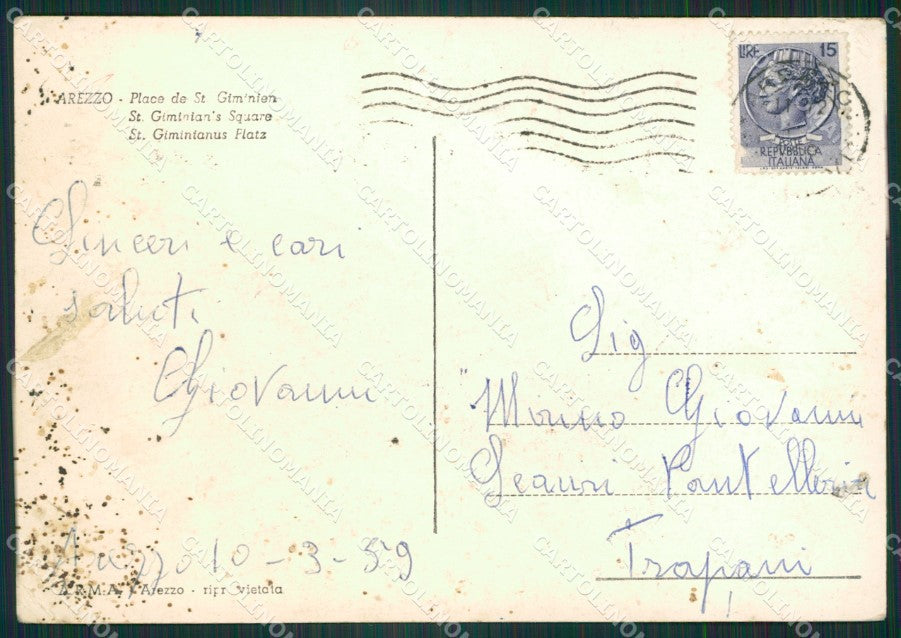 AREZZO - Place de St Giminien
St. Giminian's Square
St. Giminianus Platz
LIRE 15
REPUBBLICA
ITALIANA
Sinceri e cari
saluti
Giovanni
Arezzo 10-3-59
Arezzo - ripr. vietata
Sig
Giovanni
Scauri Pantelleria
Trapani
CARTOLINOMANIA